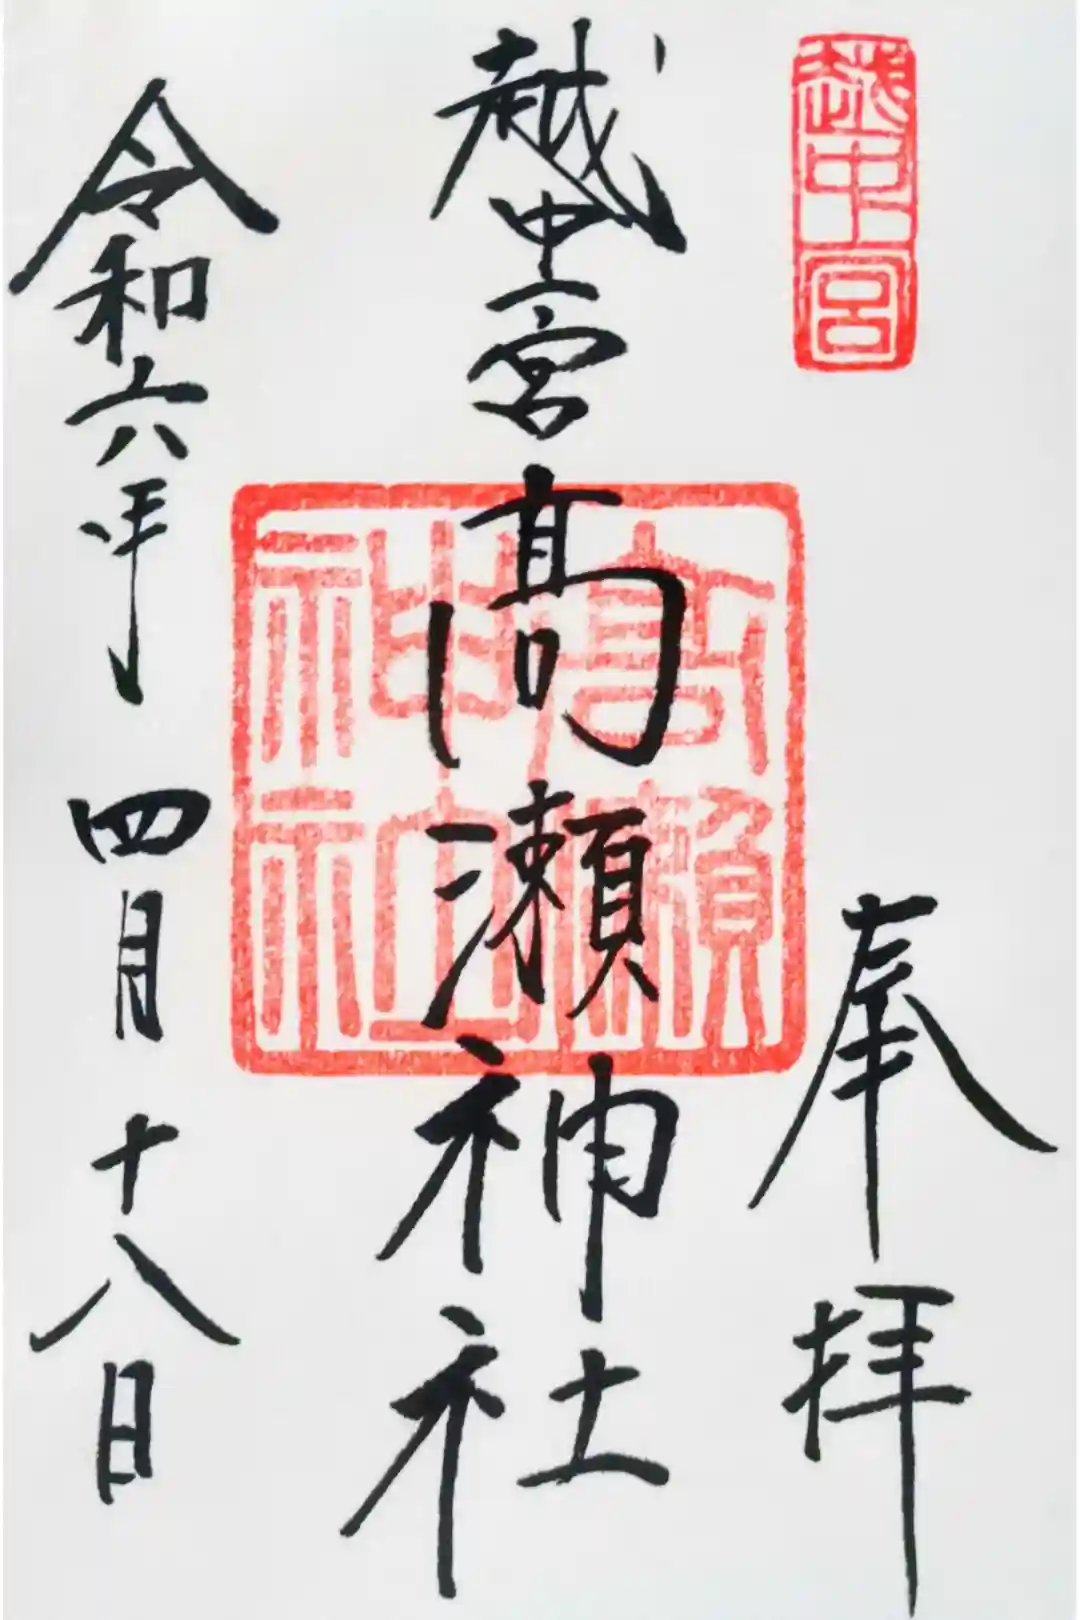 越中一宮
奉拝
越中一宮高瀬神社
高瀬神社
令和六年四月十八日